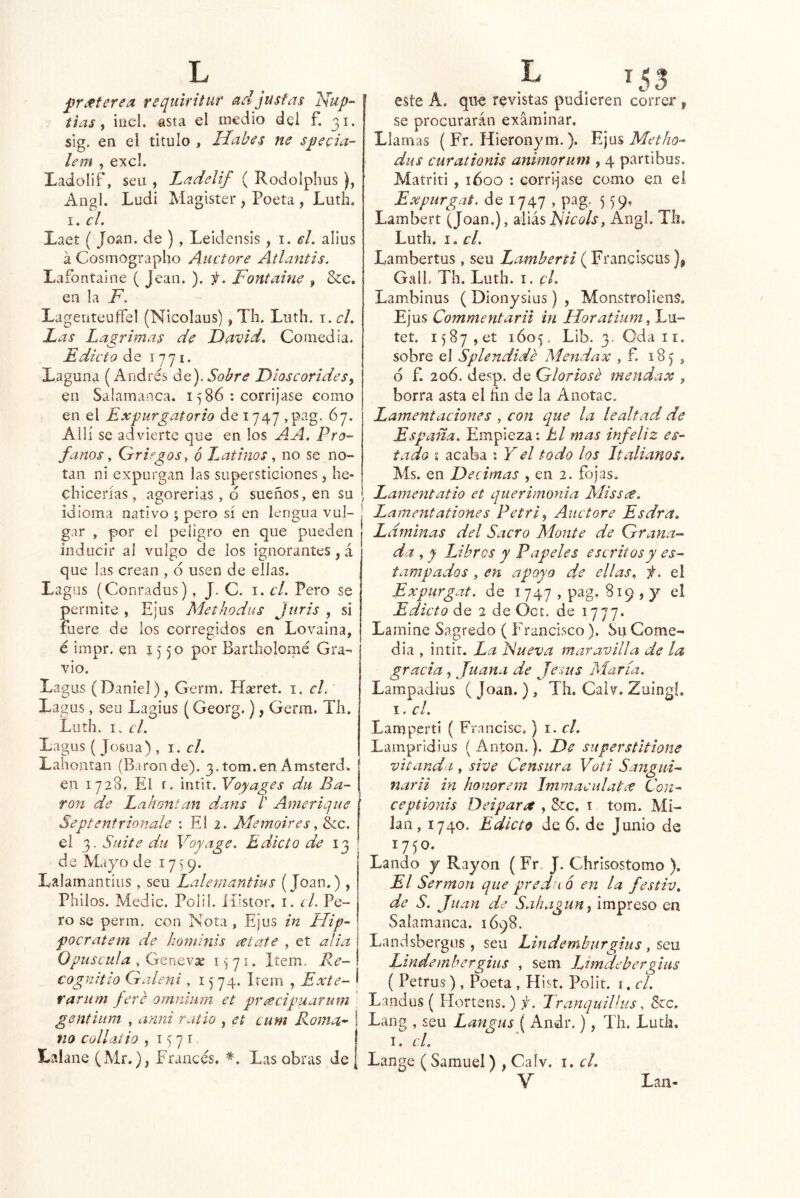 L
præterea requiritur ad justas Nup-
tias, incl. asta el medio del f. 31.
sig. en el titulo, Habes ne specia-
lem, excl.
Ladolif, seu, Ladelif (Rodolphus),
Angl. Ludi Magister, Poeta, Luth.
1. cl.
Laet (Joan. de), Leidensis, 1. cl. alius
à Cosmographo Auctore Atlantis.
Lafontaine (Jean.). ℣. Fontaine, &c.
en la F.
Lagenteuffel (Nicolaus), Th. Luth. 1. cl.
Las Lagrimas de David. Comedia.
Edicto de 1771.
Laguna (Andrés de). Sobre Dioscorides,
en Salamanca. 1586: corrijase como
en el Expurgatorio de 1747, pag. 67.
Allí se advierte que en los AA. Pro-
fanos, Griegos, ó Latinos, no se no-
tan ni expurgan las supersticiones, he-
chicerías, agorerias, ó sueños, en su
idioma nativo; pero sí en lengua vul-
gar, por el peligro en que pueden
inducir al vulgo de los ignorantes, á
que las crean, ó usen de ellas.
Lagus (Conradus), J. C. 1. cl. Pero se
permite, Ejus Methodus Juris, si
fuere de los corregidos en Lovaina,
é impr. en 1550 por Bartholomé Gra-
vio.
Lagus (Daniel), Germ. Hæret. 1. cl.
Lagus, seu Lagius (Georg.), Germ. Th.
Luth. 1. cl.
Lagus (Josua), 1. cl.
Lahontan (Baron de). 3. tom. en Amsterd.
en 1728. El 1. intit. Voyages du Ba-
ron de Lahontan dans l' Amerique
Septentrionale: El 2. Memoires, &c.
el 3. Suite du Voyage. Edicto de 13
de Mayo de 1759.
Lalamantius, seu Lalemantius (Joan.),
Philos. Medic. Polil. Histor. 1. cl. Pe-
ro se perm. con Nota, Ejus in Hip-
pocratem de hominis ætate, et alia
Opuscula, Genevæ 1571. Item. Re-
cognitio Galeni, 1574. Item, Exte-
rarum ferè omnium et præcipuarum
gentium, anni ratio, et cum Roma-
no collatio, 1571.
Lalane (Mr.), Francés. *. Las obras de
L 153
este A. que revistas pudieren correr,
se procurarán exâminar.
Llamas (Fr. Hieronym.). Ejus Metho-
dus curationis animorum, 4 partibus.
Matriti, 1600: corrijase como en el
Expurgat. de 1747, pag. 559.
Lambert (Joan.), aliás Nicols, Angl. Th.
Luth. 1. cl.
Lambertus, seu Lamberti (Franciscus),
Gall. Th. Luth. 1. cl.
Lambinus (Dionysius), Monstroliens.
Ejus Commentarii in Horatium, Lu-
tet. 1587, et 1605. Lib. 3. Oda 11.
sobre el Splendidè Mendax, f. 185,
ó f. 206. desp. de Gloriosè mendax,
borra asta el fin de la Anotac.
Lamentaciones, con que la lealtad de
España. Empieza: El mas infeliz es-
tado: acaba: Y el todo los Italianos.
Ms. en Decimas, en 2. fojas.
Lamentatio et querimonia Missæ.
Lamentationes Petri, Auctore Esdra.
Láminas del Sacro Monte de Grana-
da, y Libros y Papeles escritos y es-
tampados, en apoyo de ellas. ℣. el
Expurgat. de 1747, pag. 819, y el
Edicto de 2 de Oct. de 1777.
Lamine Sagredo (Francisco). Su Come-
dia, intit. La Nueva maravilla de la
gracia, Juana de Jesus María.
Lampadius (Joan.), Th. Calv. Zuingl.
1. cl.
Lamperti (Francisc.) 1. cl.
Lampridius (Anton.). De superstitione
vitanda, sive Censura Voti Sangui-
narii in honorem Immaculatæ Con-
ceptionis Deiparæ, &c. 1 tom. Mi-
lan, 1740. Edicto de 6. de Junio de
1750.
Lando y Rayon (Fr. J. Chrisostomo).
El Sermon que predicó en la festiv.
de S. Juan de Sahagun, impreso en
Salamanca. 1698.
Landsbergus, seu Lindemburgius, seu
Lindembergius, sem Limdebergius
(Petrus), Poeta, Hist. Polit. 1. cl.
Landus (Hortens.) ℣. Tranquillus, &c.
Lang, seu Langus (Andr.), Th. Luth.
1. cl.
Lange (Samuel), Calv. 1. cl.
V Lan-